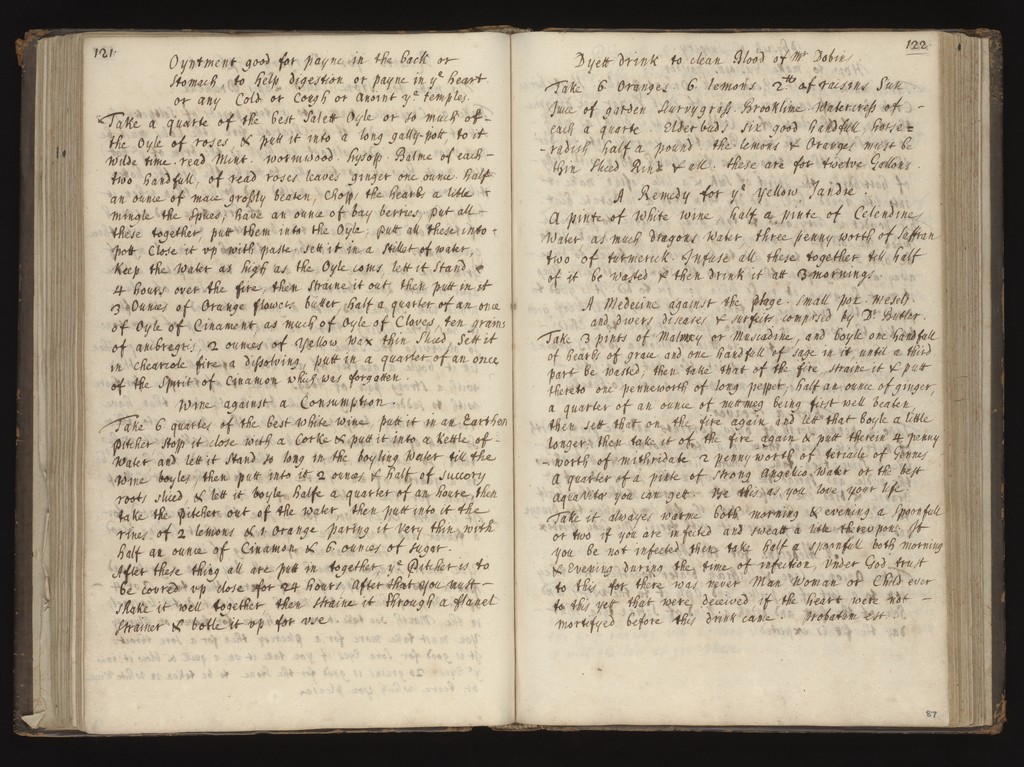 121.
Oyntment good for payne in the back or
Stomach, to help digestion or payne in yᵉ heart
or any Cold or Cough or anoint yᵉ temples.
Take a quarte of the best Salett Oyle or so much of -
the Oyle of roses & putt it into a long gally-pott to it
wilde time. read Mint. wormwood. hysop. Balme of each -
two handfull, of read roses leaves ginger one ounce. half
an ounce of mace grossly beaten, Chopp the hearbs a little
mingle the spices, have an ounce of bay berries, put all
these together, putt them into the Oyle, putt all these into -
pott. Close it vp with paste sett it in a Skillet of water,
Keep the water as high as the Oyle coms, lett it Stand
4 hours over the fire, then Straine it out, then putt in it
3 Ounces of Orange flowers butter, half a quarter of an once
of Oyle of Cinament, as much of Oyle of Cloves, ten grains
of ambregris, 2 ounces of Yellow wax thin Sliced, Sett it
in chearcole fire a dissolving, putt in a quarter of an once
of the Spirit of Cinamon which was forgotten.
Wine against a Consumption.
Take 6 quartes of the best White wine, putt it in an Earthen
pitcher Stop it close with a Corke & putt it into a Kettle of -
Water and lett it Stand so long in the boyling Water till the
Wine boyles then putt into it 2 ounces & half of succory
roots sliced, & lett it boyle halfe a quarter of an houre, then
take the pitcher out of the water, then putt into it the
rines of 2 lemons & 1 Orange paring it very thin, with
half an ounce of Cinamon & 6 ounces of sugar.
After these thing all are putt in together, yᵉ Pitcher is to
be covred vp close for 24 hours, After that you must -
Shake it well together then Straine it through a flanel
Strainer & botle it vp for vse
122
Dyett drink to clean Blood of Mʳ Dobins
Take 6 Oranges 6 lemons. 2ᵗᵗᵒ of raisins Sun
Juce of garden Scurvygrass. Brookline. Watercress of -
each a quarte Elder buds six good handfull horse=
-radish half a pound, the lemons & Oranges must be
thin Sliced Rind & all. these are for twelve Gallons.
A Remedy for yᵉ yellow Jandie.
A pinte of White wine, half a pinte of Celendine
Water as much dragons Water, three penny worth of Saffran
two of turmerick. Infuse all these together till half
of it be wasted & then drink it att 3 mornings.
A Medecine against the plage. small pox. mesels
and divers diseases & surfeits, comprised by Dʳ Butler.
Take 3 pints of Malmsey or Muscadine, and boyle one handfull
of hearbs of grace and one handfull of sage in it until a third
part be wasted, then take that of the fire, straine it & putt
thereto one penneworth of long pepper, half an ounce of ginger,
a quarter of an ounce of nuttmeg being first well beaten
then sett that on the fire again and lett that boyle a little
longer, then take it of the fire again & putt therein 4 penny
-worth of mithridate 2 pennyworth of teriacle of Gennes
A quarter of a pinte of strong Angelico Water or the best
aquavitæ you can get. Vse this as you love your life
Take it always warme both morning & evening a spoonfull
or two if you are infected and sweatt a little therevpon. If
you be not infected then take half a spoonfull both morning
& Evening during the time of infection, Under God trust
to this for there was never Man Woman or Child ever
to this yett that were deceived if the heart were not -
mortifyed before this drink came. Probatum est.
87